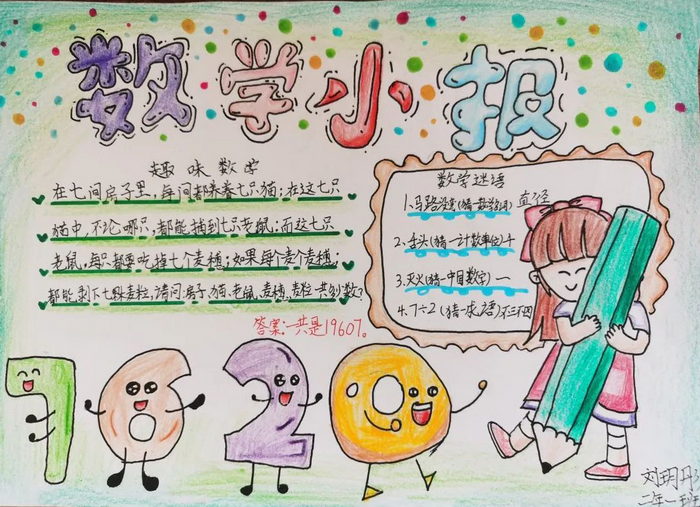 数学小报
趣味数学
在七间房子里,每间都养着七只猫;在这七只
猫中,不论哪只,都能捕到七只老鼠;而这七只
老鼠,每只都要吃掉七个麦穗;如果每个麦穗
都能剩下七颗麦粒,请问:房子、猫、老鼠、麦穗、麦粒一共多少数?
答案:一共是19607。
数学谜语
1.马路没弯(猜一数学名词)直径
2.舌头(猜一计数单位)千
3.灭火(猜一中国数字)一
4.7÷2(猜一成语)不三不四
7620
刘玥彤
二年一班